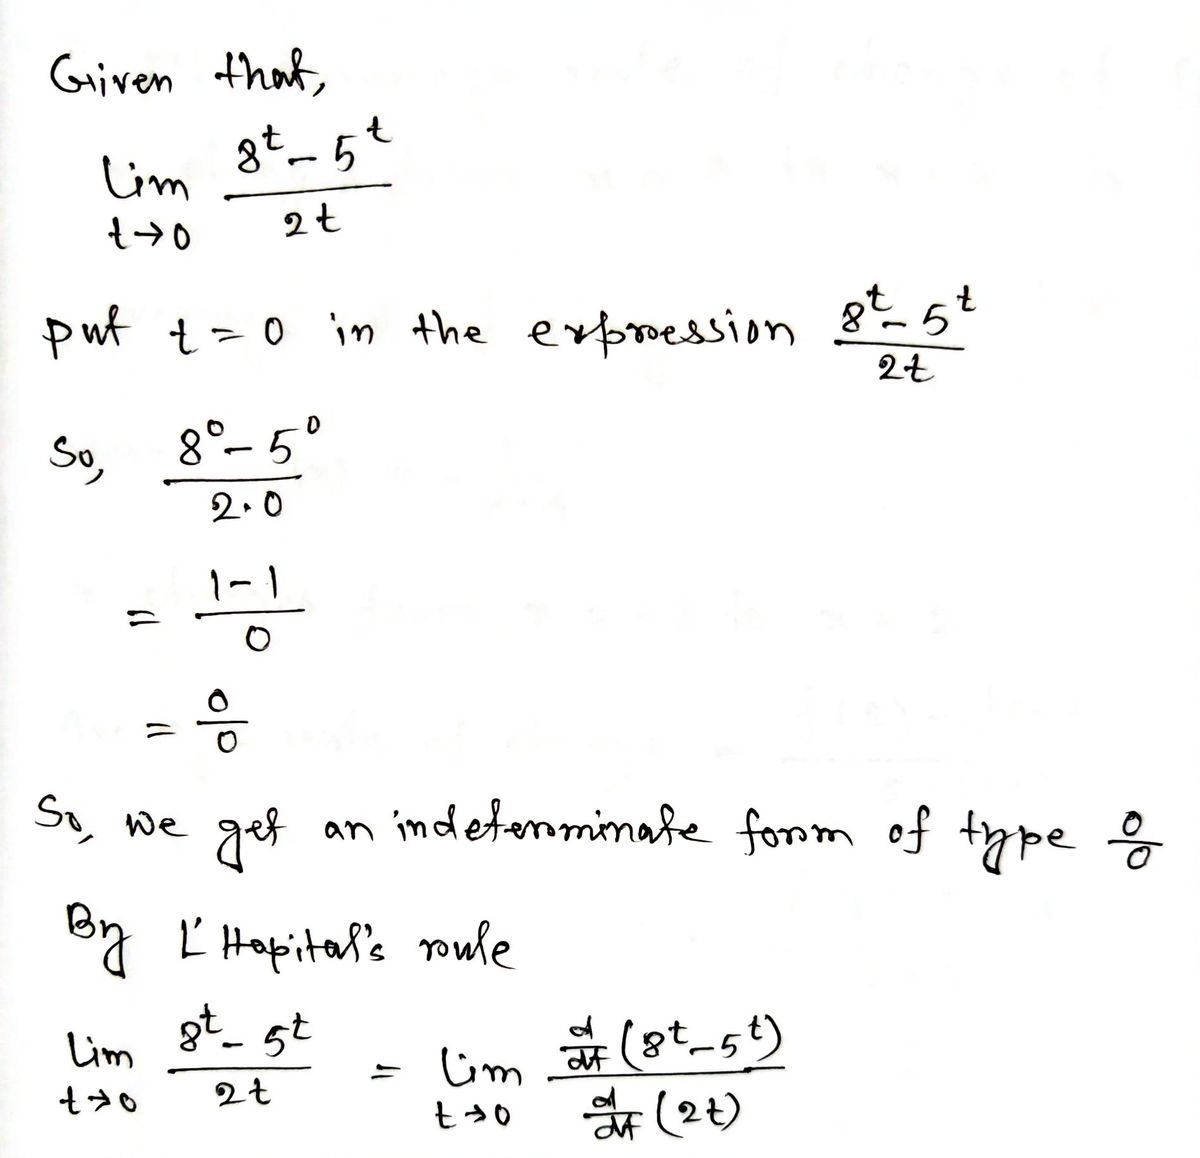 Given that,
lim t→0 (8^t - 5^t)/(2t)
put t = 0 in the expression (8^t - 5^t)/(2t)
So, (8^0 - 5^0)/(2·0)
= (1-1)/0
= 0/0
So, we get an indeterminate form of type 0/0
By L'Hopital's rule
lim t→0 (8^t - 5^t)/(2t) = lim t→0 (d/dt (8^t - 5^t))/(d/dt (2t))